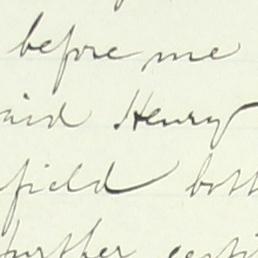 before me
said Henry
field both
further certi